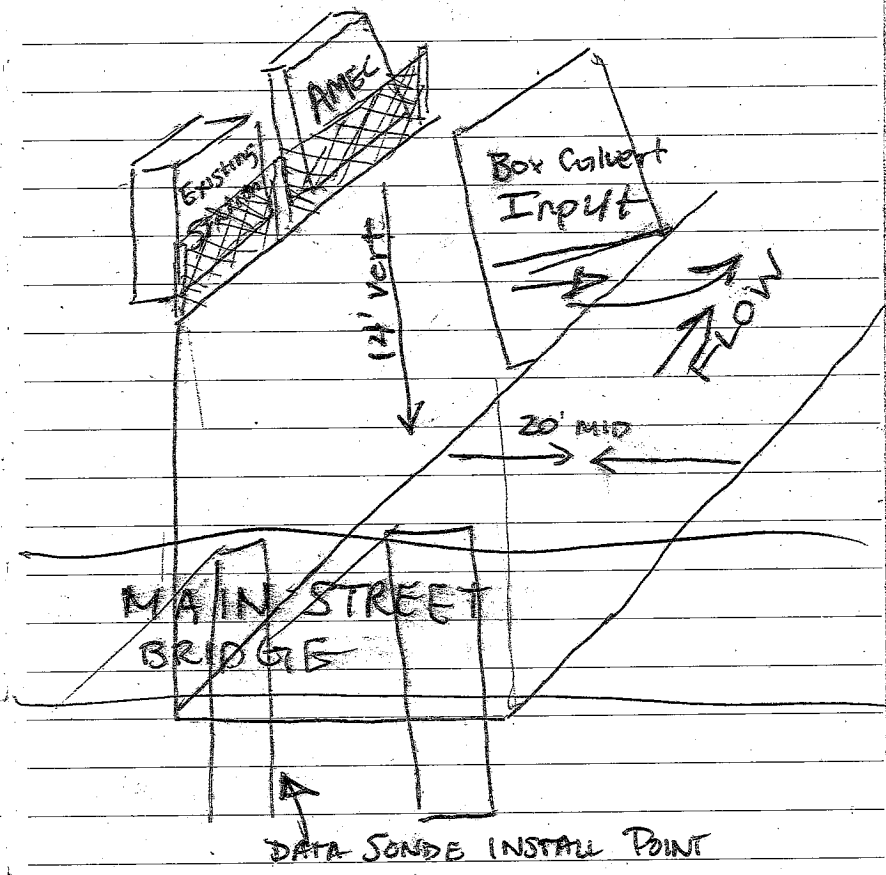 AMEC
Existing
Station
Box Culvert
Input
14' vert
FLOW
20' MID
MAIN STREET
BRIDGE
DATA SONDE INSTALL POINT